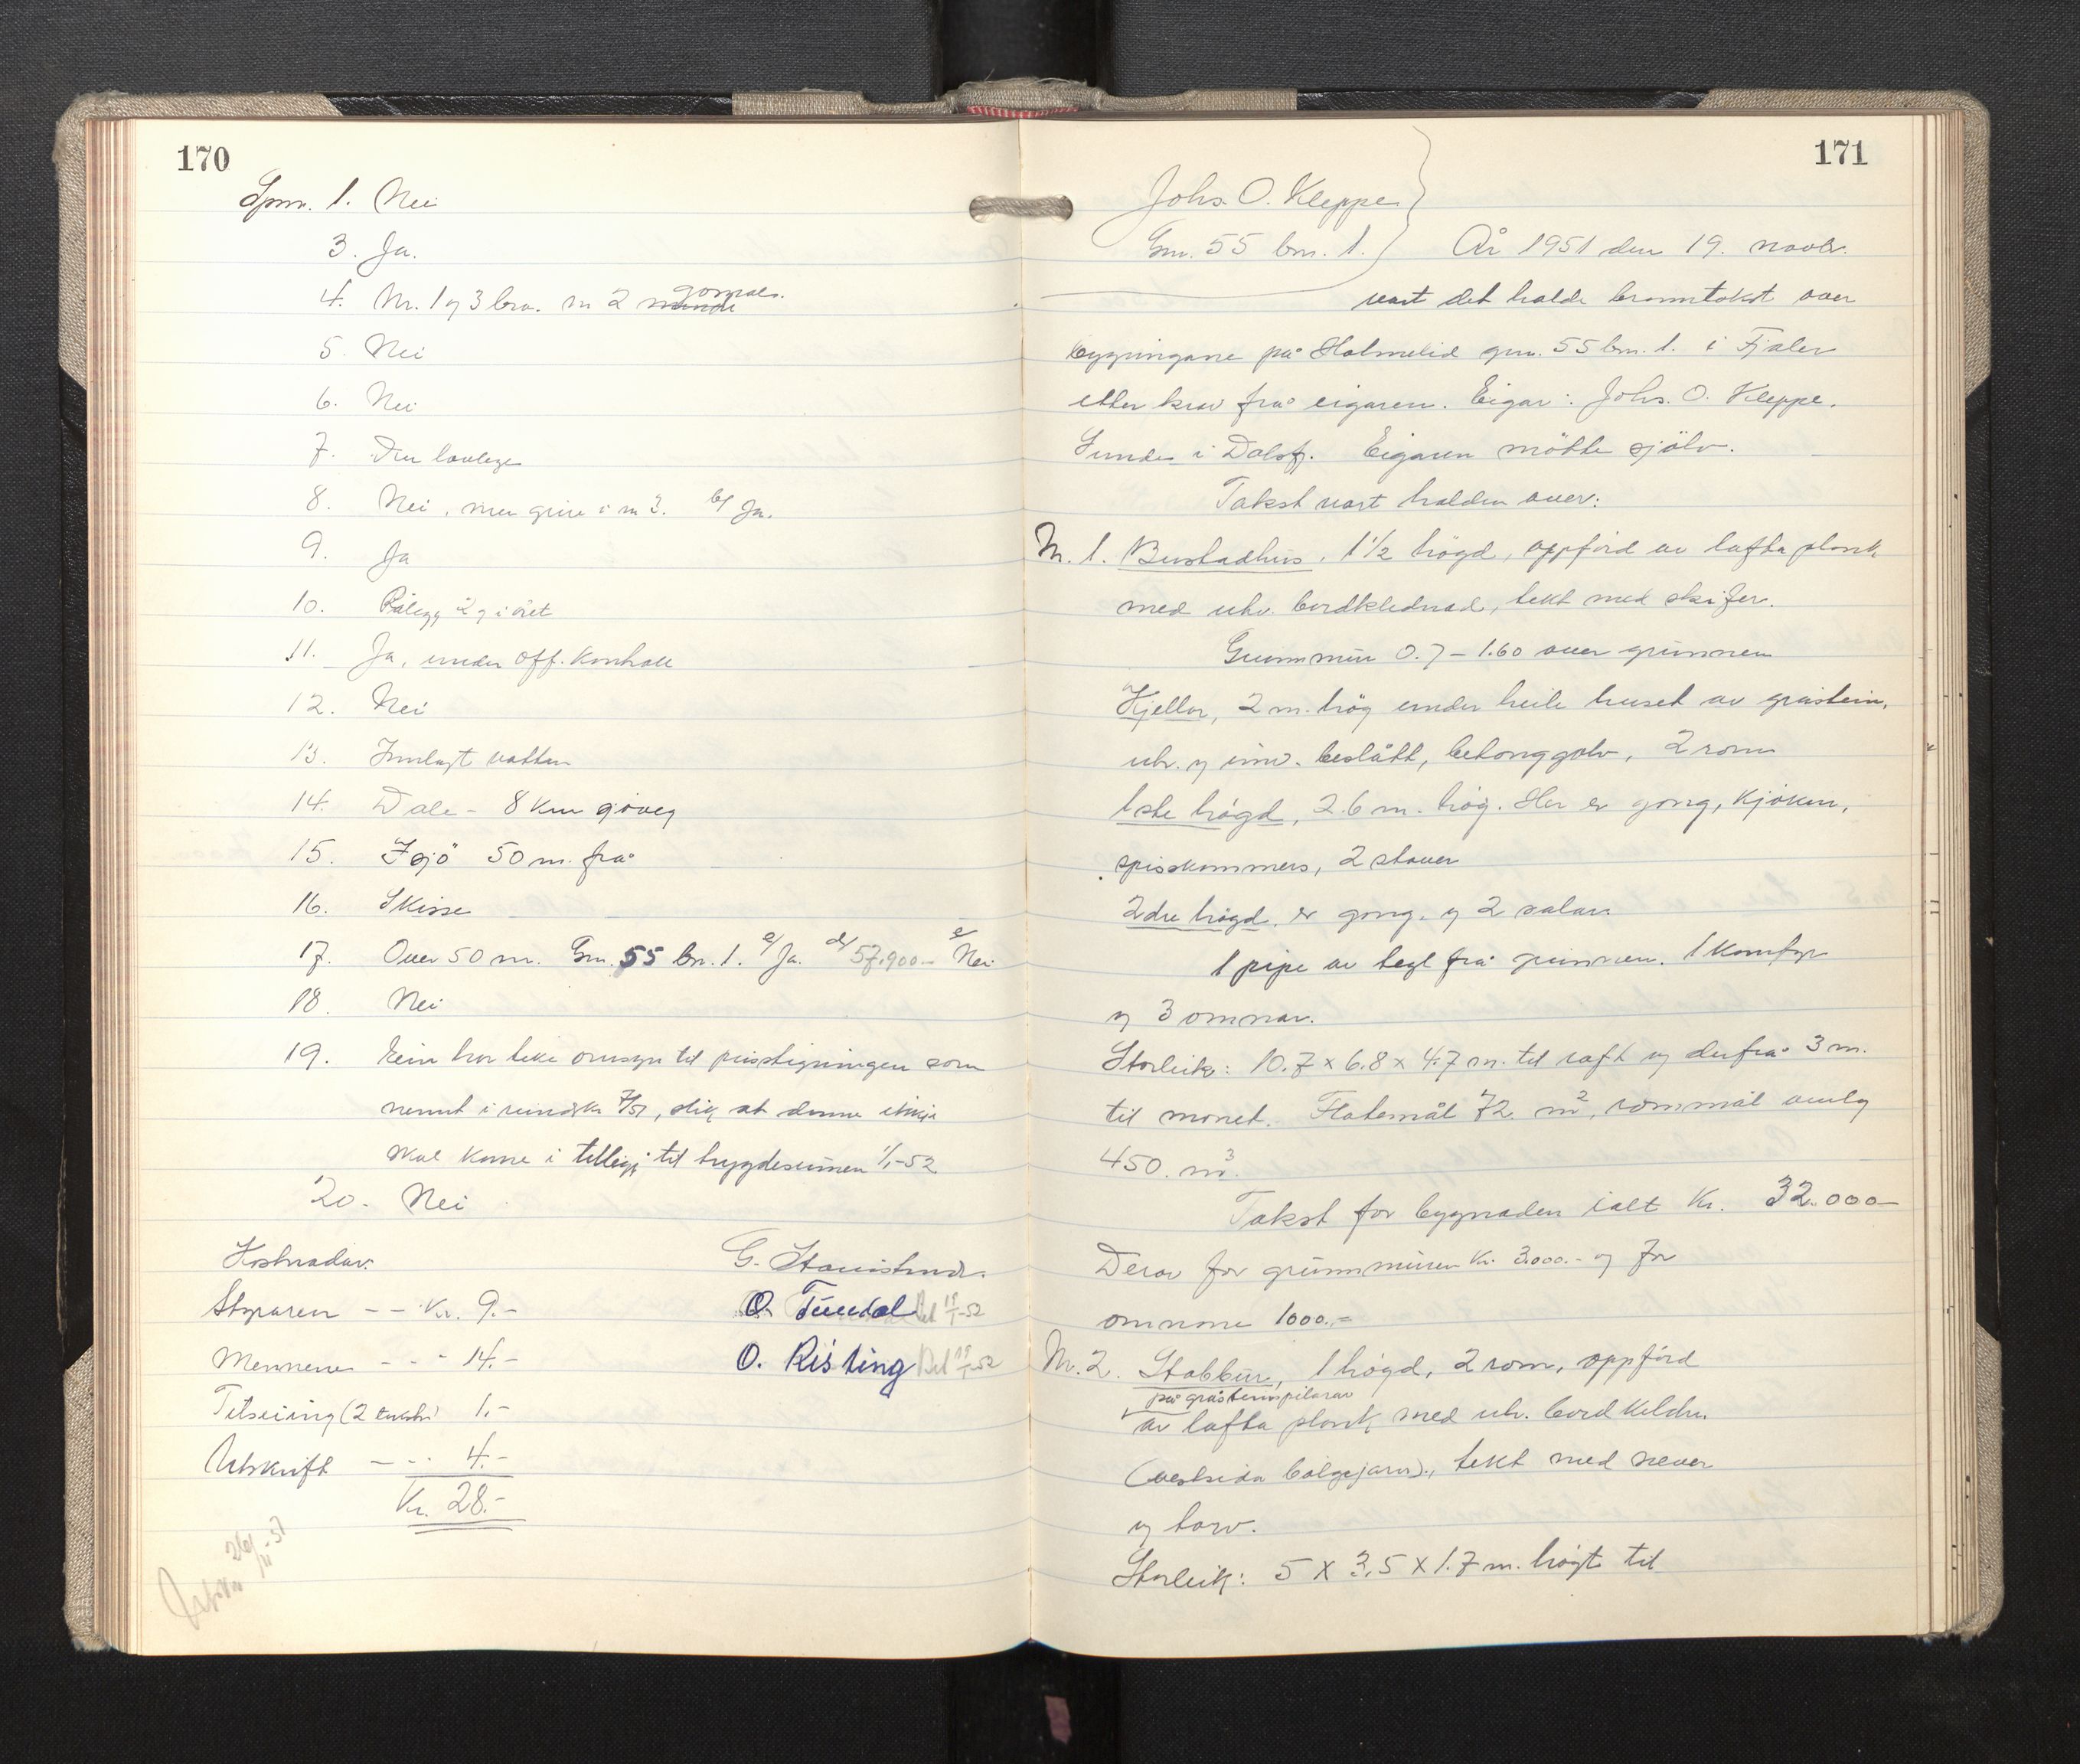 170
Spm. 1. Nei
3. Ja.
4. Nr. 1 og 3 bra. nr 2 mindre gomals.
5. Nei
6. Nei
7. Den lovlege
8. Nei, men grue i nr 3. b/ Ja.
9. Ja
10. Pålegg 2 g i året
11. Ja, under off. kontroll
12. Nei
13. Innlagt vatten
14. Dale - 8 km sjöveg
15. I sjö 50 m. frå
16. Skisse
17. Over 50 m. Gnr. 55 bnr. 1. a/ Ja. d/ 57.900 - e/ Nei
18. Nei
19. Ein har ikke omsyn til prisstigningen som
nemnt i rundskr. 7/51, slik at denne ikkje
skal kome i tillegg til trygdesumen 1/1-52
20. Nei
Kostnadar:
Styraren -- Kr. 9.-
Mennene - - - 14.-
Tilseiing (2 takstr) 1.-
Utskrift - - - 4.-
Kr. 28.-
26/11-51
O. Tundal
O. Risting
171
Johs. O. Kleppe
Gnr. 55 bnr. 1. År 1951 den 19. novbr.
vart det halde branntakst over
bygningane på Holmelid gnr. 55 bnr. 1. i Fjaler
etter krav frå eigaren. Eigar: Johs. O. Kleppe.
Sunde i Dalsfj. Eigaren mötte sjölv.
Takst vart halden over:
Nr. 1. Bustadhus. 1 1/2 högd, oppförd av lafta plank
med utv. bordklednad, tekt med skifer.
Grunnmur 0.7 - 1.60 over grunnen
Kjellar, 2 m. hög under heile huset av gråstein,
utv. og innv. beslått, betonggolv, 2 rom
1ste högd, 2.6 m. hög. Her er gong, kjöken,
spisskommers, 2 stover
2dre högd. er gong og 2 salar.
1 pipe av tegl frå grunnen. 1 komfyr
og 3 omnar.
Storleik: 10.7 x 6.8 x 4.7 m. til raft og derfrå 3 m.
til mönet. Flatemål 72 m², rommål omlag
450 m³.
Takst for bygnaden ialt Kr. 32.000 -
Derav for grunnmuren Kr. 3000.- og for
omnane 1000.-
Nr. 2. Stabbur, 1 högd, 2 rom, oppförd
på gråsteinspilarar
av lafta plank med utv. bord kledn.
(vestsida bölgejarn)., tekt med never
og torv.
Storleik: 5 x 3.5 x 1.7 m. högt til